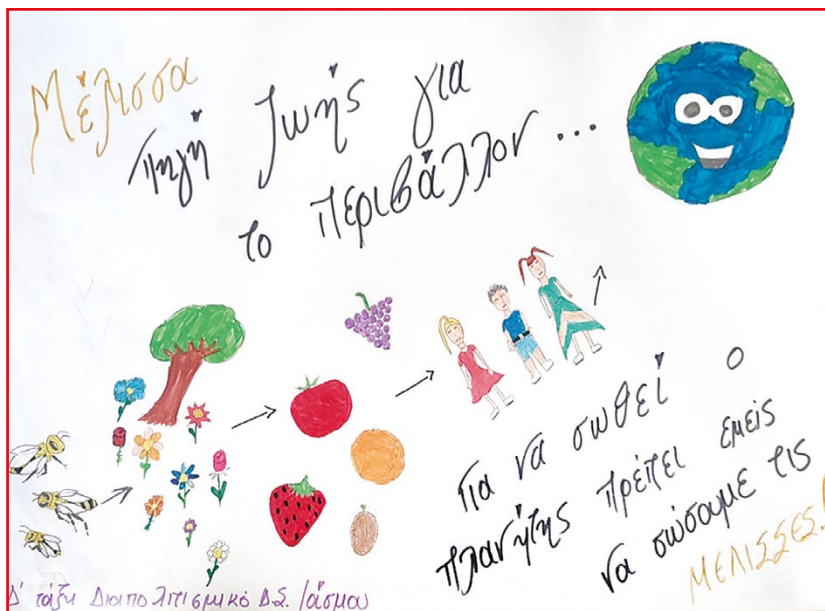 Μέλισσα
πηγή ζωής για
το περιβάλλον...
Για να σωθεί ο
πλανήτης πρέπει εμείς
να σώσουμε τις
ΜΕΛΙΣΣΕΣ!
Δ' τάξη Διαπολιτισμικό Δ.Σ. Ιάσμου